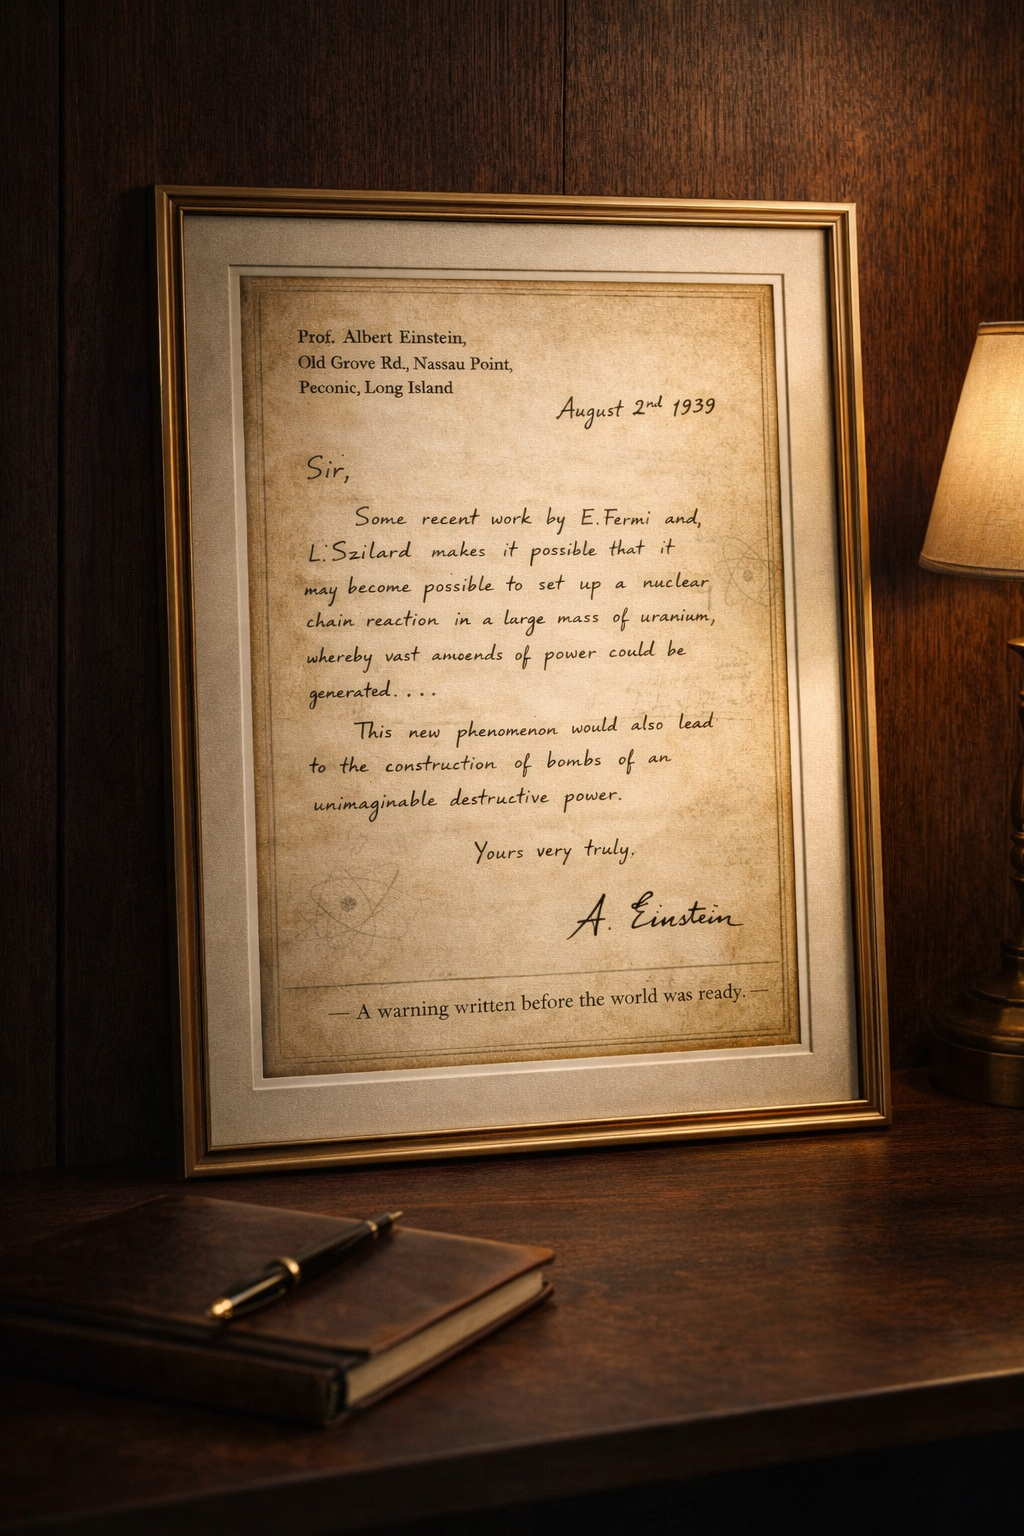 Prof. Albert Einstein,
Old Grove Rd., Nassau Point,
Peconic, Long Island
August 2nd 1939
Sir,
Some recent work by E. Fermi and,
L. Szilard makes it possible that it
may become possible to set up a nuclear
chain reaction in a large mass of uranium,
whereby vast amoends of power could be
generated. . . .
This new phenomenon would also lead
to the construction of bombs of an
unimaginable destructive power.
Yours very truly.
A. Einstein
— A warning written before the world was ready. —